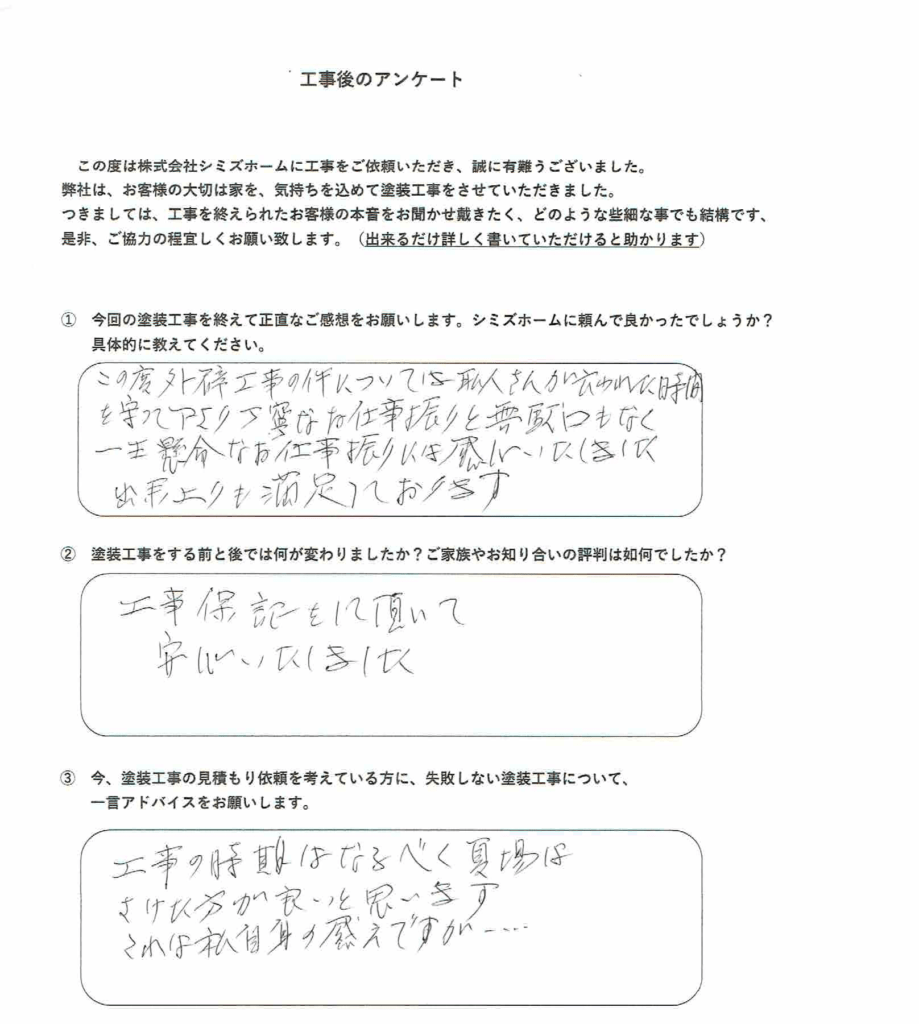 工事後のアンケート
この度は株式会社シミズホームに工事をご依頼いただき、誠に有難うございました。
弊社は、お客様の大切は家を、気持ちを込めて塗装工事をさせていただきました。
つきましては、工事を終えられたお客様の本音をお聞かせ戴きたく、どのような些細な事でも結構です、
是非、ご協力の程宜しくお願い致します。（出来るだけ詳しく書いていただけると助かります）
① 今回の塗装工事を終えて正直なご感想をお願いします。シミズホームに頼んで良かったでしょうか？
具体的に教えてください。
この度外碎工事の件については 人さんが云われた時間
を守って下より丁寧なお仕事振りと無駄口もなく
一生懸命なお仕事振りには感心いたしました
出来上りも満足しております
② 塗装工事をする前と後では何が変わりましたか？ご家族やお知り合いの評判は如何でしたか？
工事保記をして頂いて
安心いたしました
③ 今、塗装工事の見積もり依頼を考えている方に、失敗しない塗装工事について、
一言アドバイスをお願いします。
工事の時期はなるべく夏場は
さけた方が良いと思います
これは私自身の感えですが……